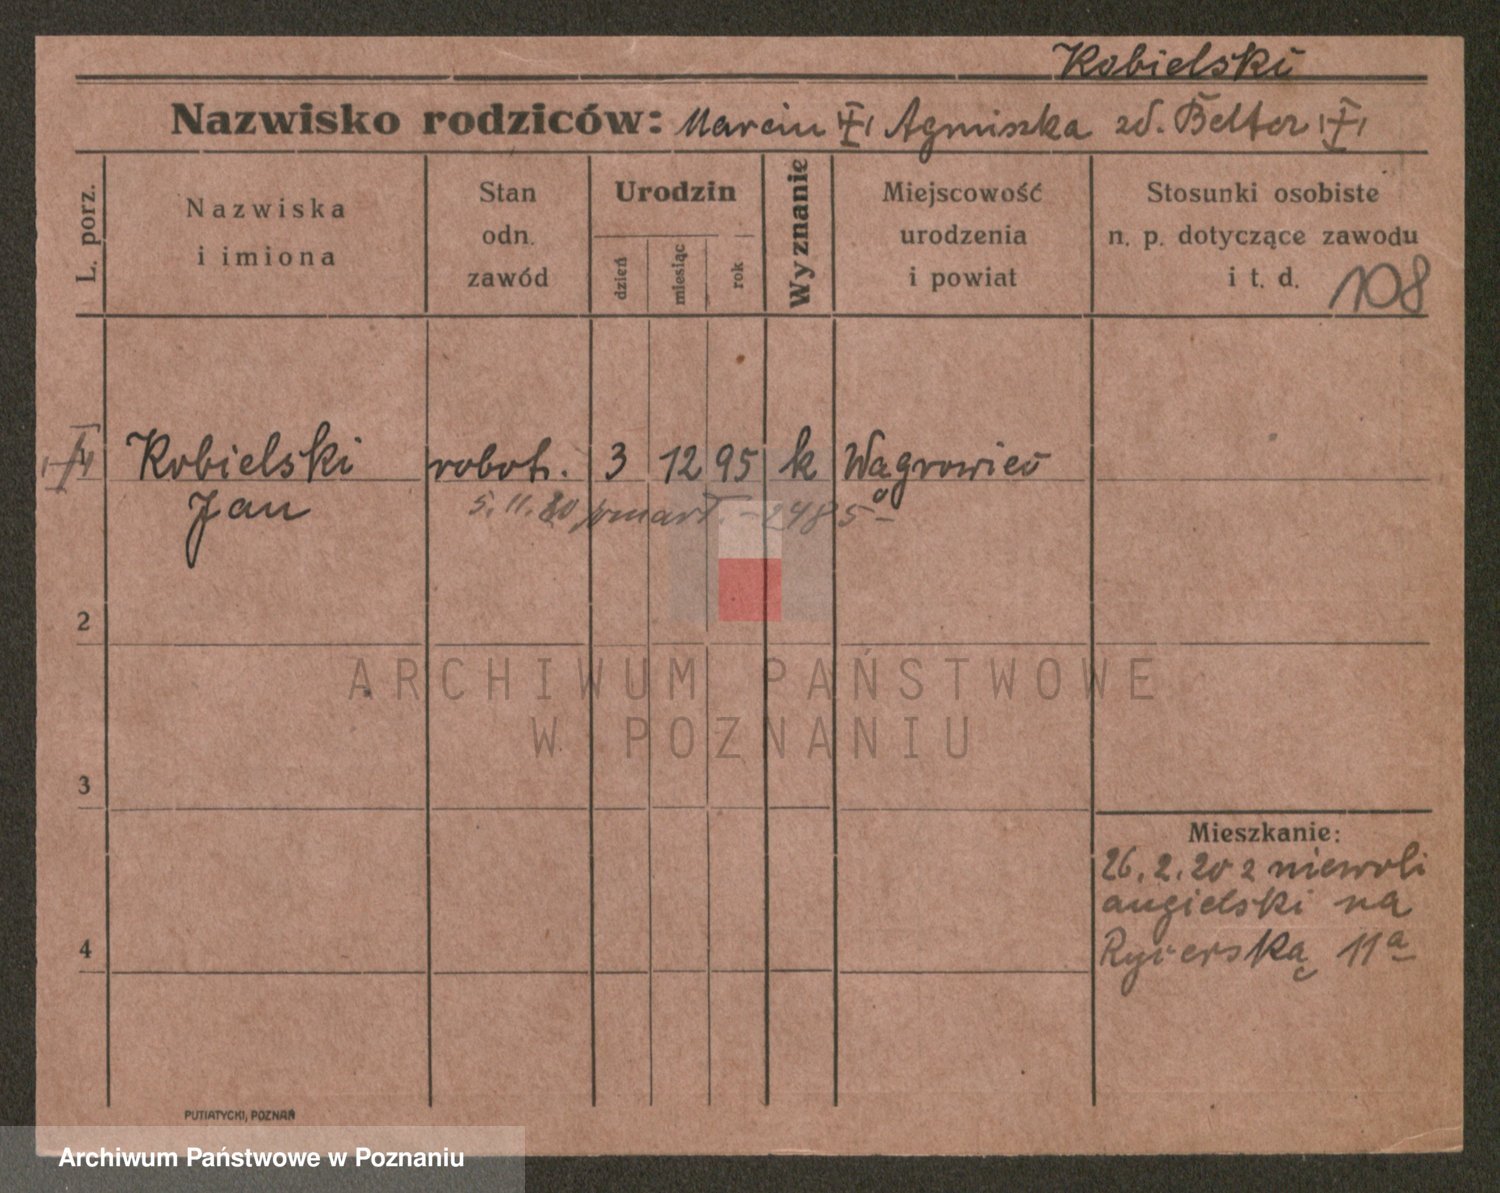 Kobielski
Nazwisko rodziców: Marcin Agniszka zd. Belter
L. porz.
Nazwiska
i imiona
Stan
odn.
zawód
Urodzin
dzień
miesiąc
rok
Wyznanie
Miejscowość
urodzenia
i powiat
Stosunki osobiste
n. p. dotyczące zawodu
i t. d.
108
Kobielski robotn. 3 12 95 k Wągrowiec
Jan
5. 11. 20 zmarł. - 2485 -
2
3
4
Mieszkanie:
26. 2. 20 z niewoli
angielski na
Rycerską 11a
PUTIATYCKI, POZNAŃ
ARCHIWUM PAŃSTWOWE
W POZNANIU
Archiwum Państwowe w Poznaniu